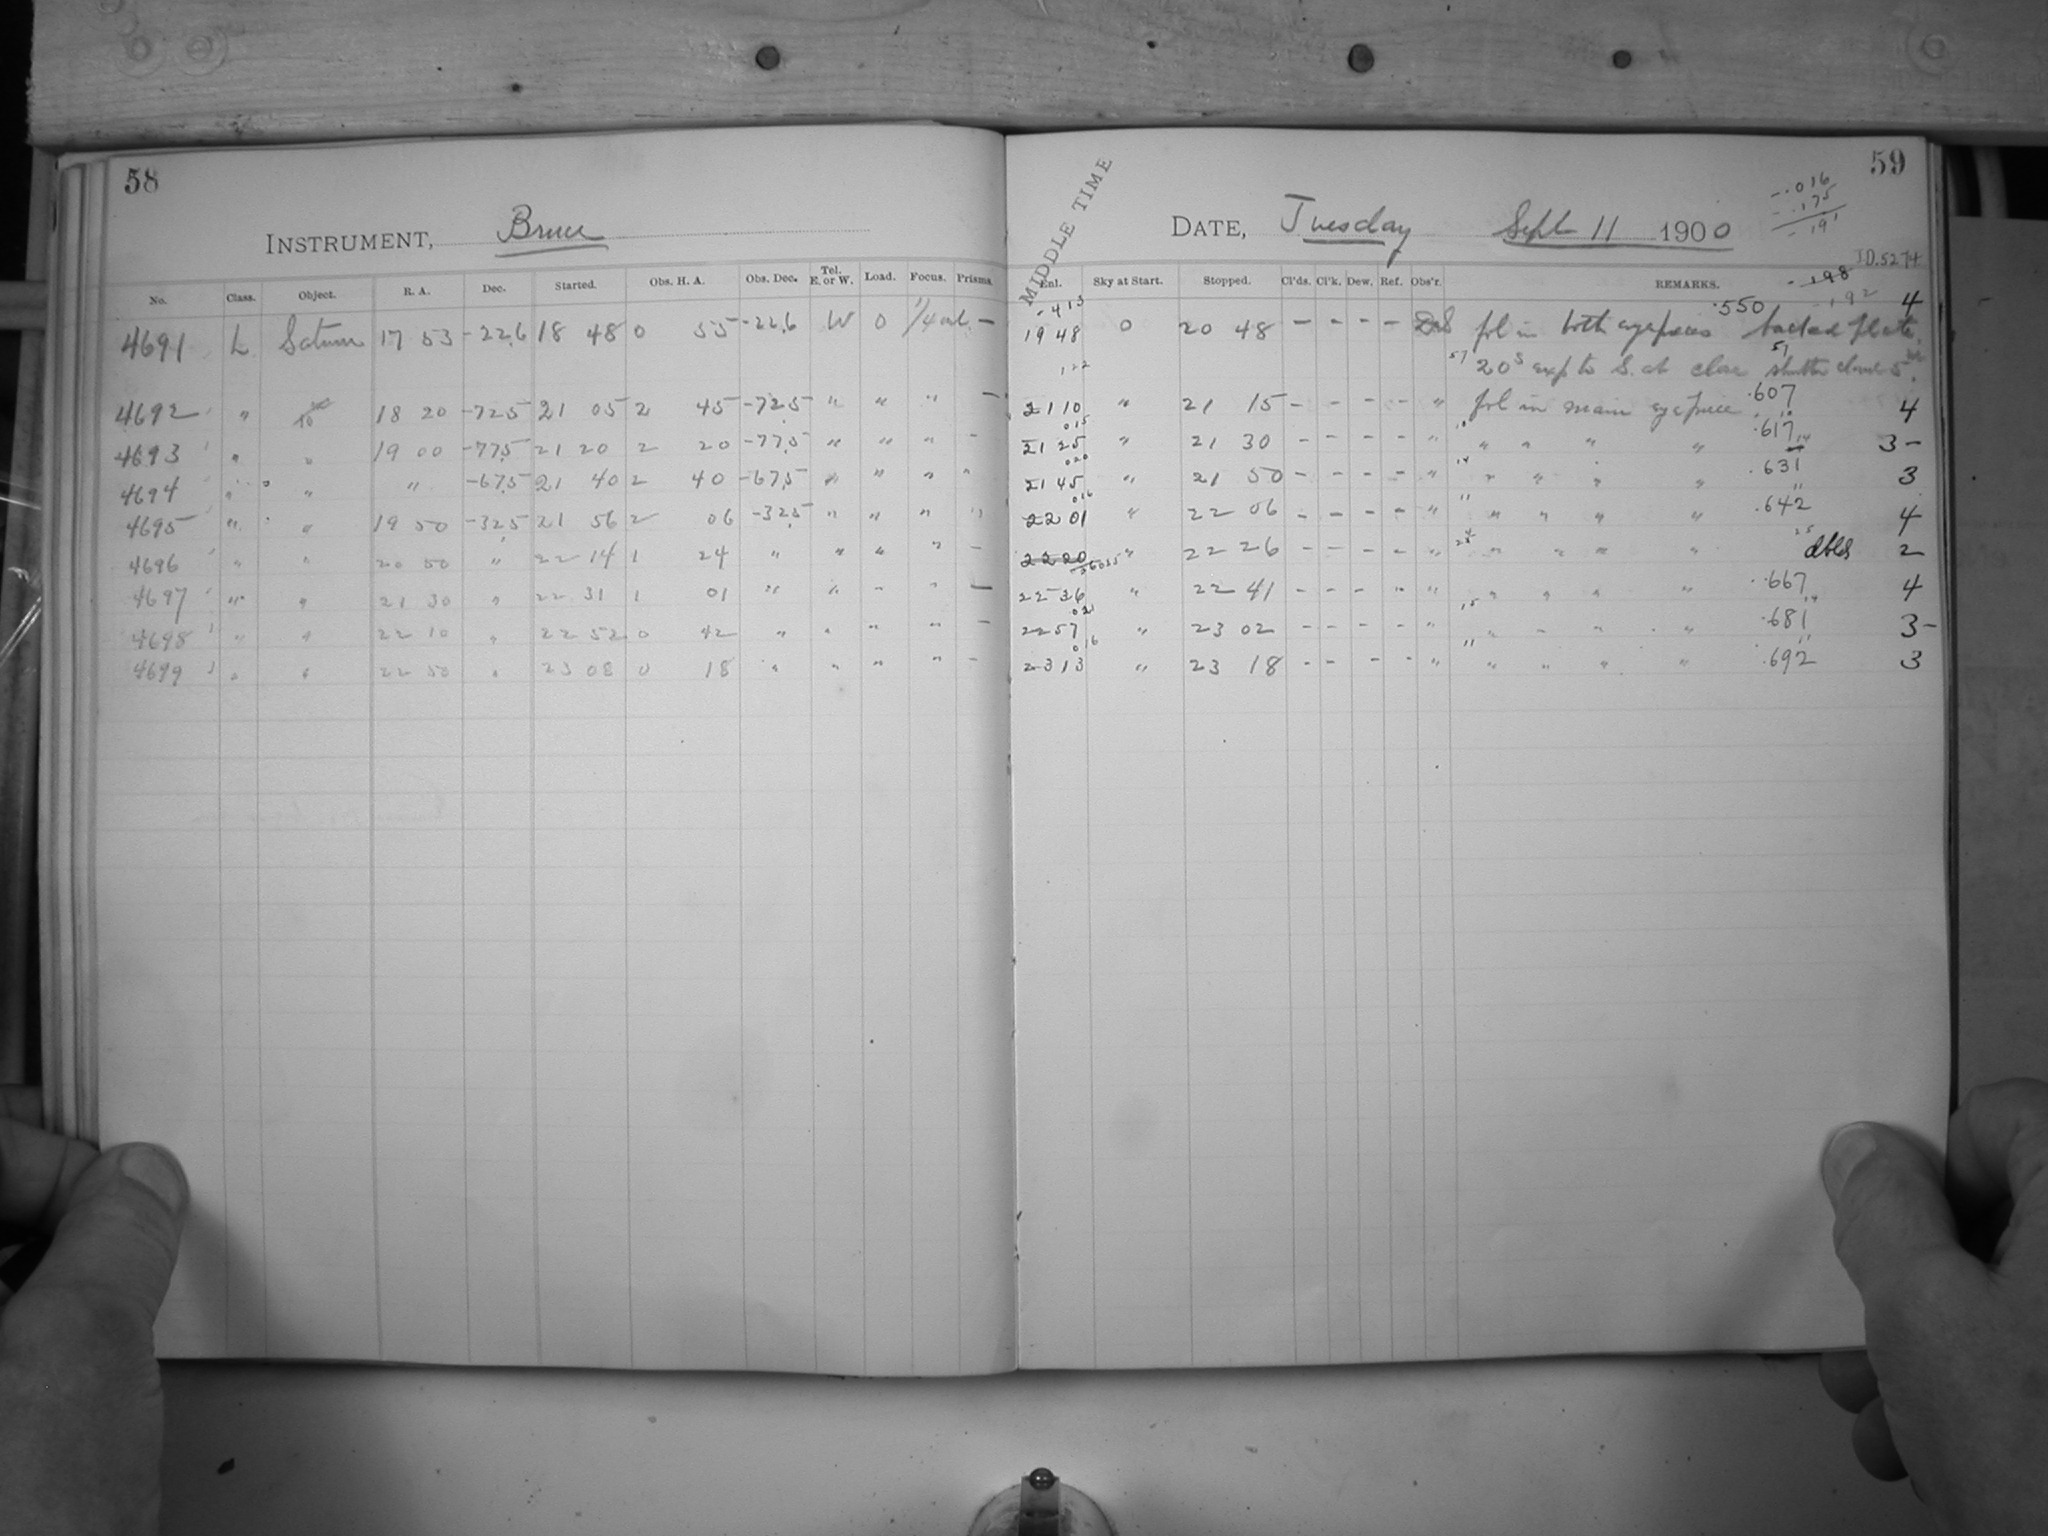 58
INSTRUMENT, Bruce
No. Class. Object. R. A. Dec. Started. Obs. H. A. Obs. Dec. Tel. E. or W. Load. Focus. Prisms.
4691 L Saturn 17 53 -22.6 18 48 0 55 -22.6 W 0 —
4692 " 18 20 -72.5 21 05 2 45 -72.5 " " " —
4693 " " 19 00 -77.5 21 20 2 20 -77.5 " " " -
4694 " " " -67.5 21 40 2 40 -67.5 " " " "
4695 " " 19 50 -32.5 21 56 2 06 -32.5 " " " "
4696 " " 20 50 " 22 14 1 24 " " " " -
4697 " " 21 30 " 22 31 1 01 " " " " —
4698 " " 22 10 " 22 52 0 42 " " " " -
4699 " " 22 50 " 23 08 0 18 " " " " -
59
-.016
-.175
-.191
MIDDLE TIME
DATE, Tuesday Sept 11 1900
J.D. 5274
Enl. Sky at Start. Stopped. Cl'ds. Cl'k. Dew. Ref. Obs'r. REMARKS.
-.198
-.192
-.413 .550 4
19 48 0 20 48 - - - - fol in both eyepieces backed plate.
122 57 20s exp to S. at close shutter closed 5
57
21 10 " 21 15 - - - - " fol in main eyepiece .607 4
015 10
21 25 " 21 30 - - - - " " " " " .617 3-
020 14
21 45 " 21 50 - - - - " " " " " .631 3
016 11
22 01 " 22 06 - - - - " " " " " .642 4
22 20 " 22 26 - - - - " " " " " dbled 2
035 25
22 36 " 22 41 - - - - " " " " " .667 4
021 14
22 57 " 23 02 - - - - " " " " " .681 3-
016 11
23 13 " 23 18 - - - - " " " " " .692 3